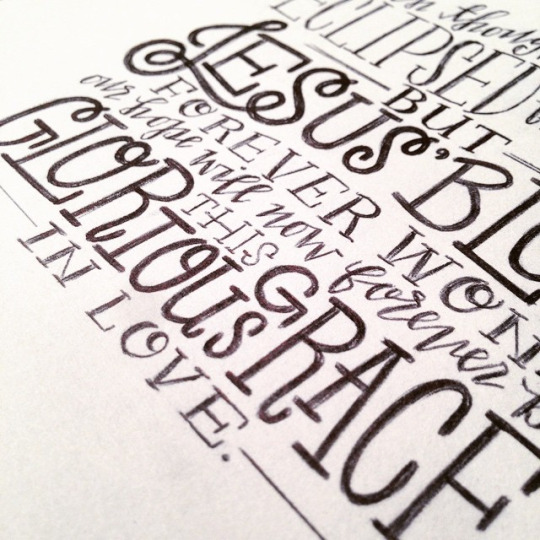 though
ECLIPSED
BUT
JESUS' BLO
FOREVER WON
our hope will now forever b
THIS
GLORIOUS GRACE
IN LOVE.